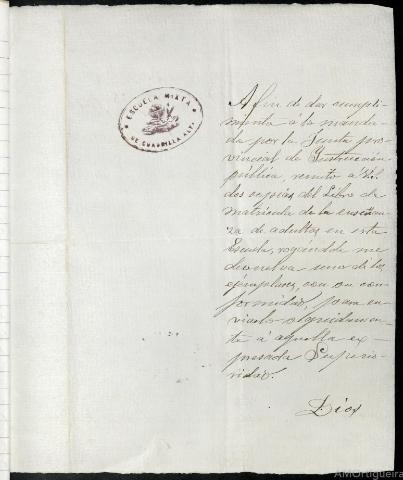 ESCUELA MIXTA
DE CUADRILLA ALTA
A fin de dar cumpli-
miento á lo manda-
do por la Junta pro-
vincial de Instrucción
pública, remito á Vd.
dos copias del Libro de
matrícula de la enseñan-
za de adultos en esta
Escuela, rogándole me
devuelva uno de los
ejemplares, con su con-
formidad, para en-
viarlo seguidamen-
te á aquella ex-
presada Superio-
ridad.
Dios
AMOrtigueira